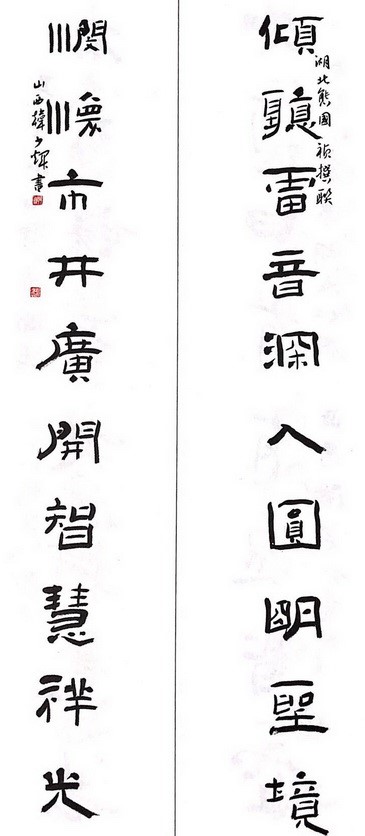 傾聽雷音深入圓明聖境
湖北熊國禎撰聯
憫懷市井廣開智慧祥光
山西少書